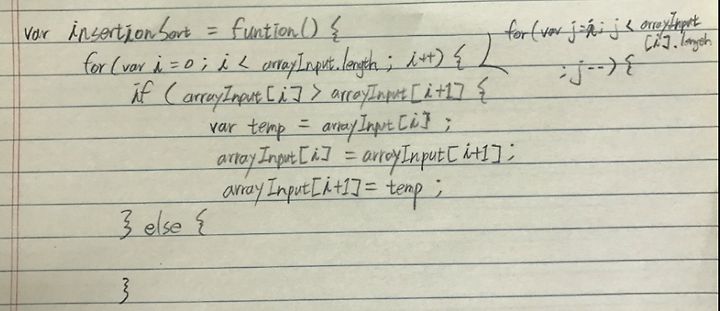 var insertionSort = funtion() {
for(var i = 0 ; i < arrayInput.length ; i++) {
for(var j=i; j < arrayInput
[i].length
; j--) {
if ( arrayInput[i] > arrayInput[i+1] {
var temp = arrayInput[i] ;
arrayInput[i] = arrayInput[i+1] ;
arrayInput[i+1] = temp ;
} else {
}